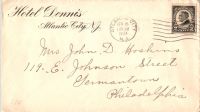 Hotel Dennis
Atlantic City, N.J.
Mrs John D Hoskins
119. E. Johnson Street
Germantown
Philadelphia